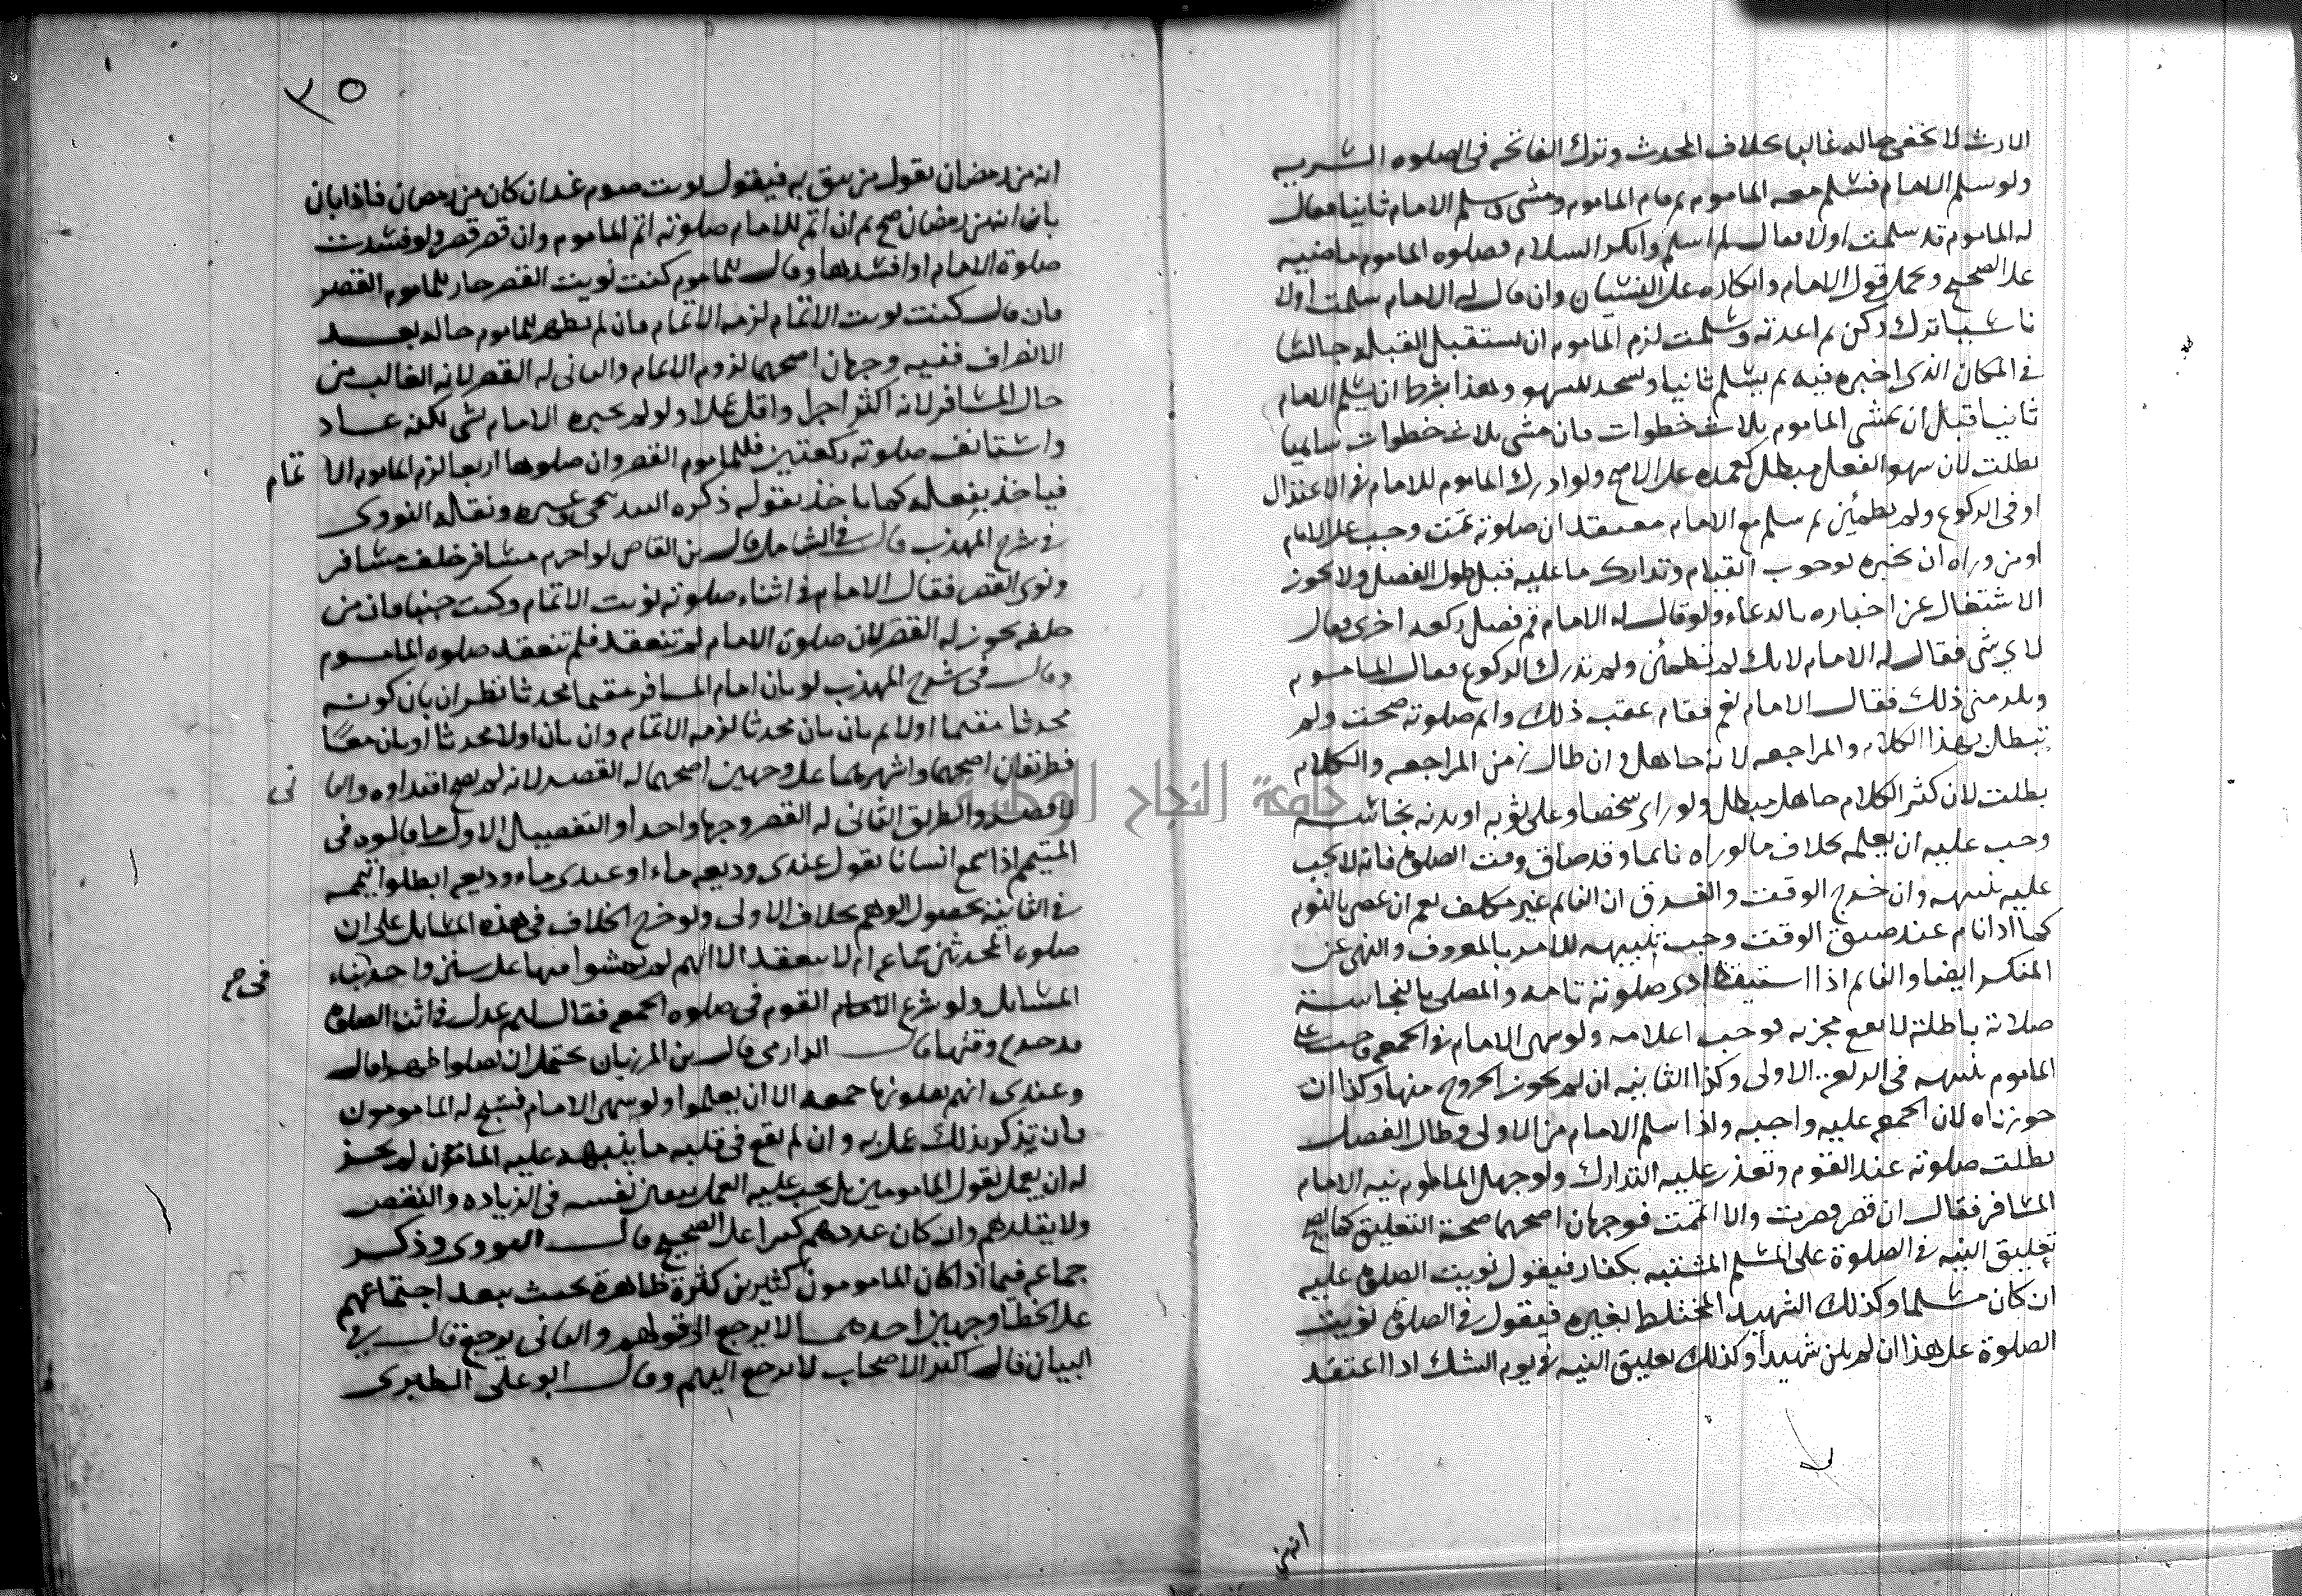 الارث لا يخفى حاله غالبا بخلاف المحدث وترك الفاتحه فى الصلوه السريه
ولو سلم الامام فسلم معه الماموم ثم قام الماموم ومشى وسلم الامام ثانيا فقال
له الماموم قد سلمت اولا فقال لم اسلم وانكر السلام فصلوه الماموم ماضيه
على الصحيح ويحمل قول الامام وانكاره على النسيان وان قال له الامام سلمت اولا
ناسيا ترك ركن ثم اعدته وسلمت لزم الماموم ان يستقبل القبله جالسا
فى المكان الذى اخبره فيه ثم يسلم ثانيا ويسجد للسهو وهذا بشرط ان يسلم الامام
ثانيا قبل ان يمشى الماموم ثلاث خطوات فان مشى ثلاث خطوات ساهيا
بطلت لان سهو الفعل مبطل كعمده على الاصح ولو ادرك الماموم للامام فى الاعتدال
او فى الركوع ولم يطمئن ثم سلم مع الامام معتقد ان صلوته تمت وجب على الامام
او من وراه ان يخبره لوجوب القيام وتدارك ما عليه قبل طول الفصل ولا يجوز
الاشتغال عن اخباره بالدعاء ولو قال له الامام قم فصل ركعه اخرى فقال
لاى شى فقال له الامام لانك لم تطمئن ولم تدرك الركوع فقال الماموم
وبلد منى ذلك فقال الامام نعم فقام عقب ذلك واتم صلوته صحت ولم
تبطل بهذا الكلام والمراجعه لانه جاهل وان طال زمن المراجعه والكلام
بطلت لان كثير الكلام جاهل مبطل ولو راى شخصا وعلى ثوبه او بدنه نجاسه
وجب عليه ان يعلمه بخلاف ما لو راه نائما وقد ضاق وقت الصلوة فانه لا يجب
عليه تنبيهه وان خرج الوقت والفرق ان النائم غير مكلف نعم ان عصى بالنوم
كما اذا نام عند ضيق الوقت وجب تنبيهه للامر بالمعروف والنهى عن
المنكر ايضا والنائم اذا استيقظ ادى صلوته تامه والمصلى بالنجاسة
صلاته باطلة لا تقع مجزيه فوجب اعلامه ولو سهى الامام فى الجمعه وجب على
الماموم تنبيهه فى الركعه الاولى وكذا الثانيه ان لم يجوز الخروج منها وكذا ان
جوزناه لان الجمعه عليه واجبه واذا سلم الامام من الاولى وطال الفصل
بطلت صلوته عند القوم وتعذر عليه التدارك ولو جهل الماموم نيه الامام
المسافر فقال ان قصر قصرت والا اتممت فوجهان اصحهما صحة التعليق كما يصح
تعليق النيه فى الصلوة على المسلم المشتبه بكفار فيقول نويت الصلوة عليه
ان كان مسلما وكذلك الشهيد المختلط بغيره فيقول فى الصلوة نويت
الصلوة على هذا ان لم يكن شهيدا وكذلك تعليق النيه فى يوم الشك اذا اعتقد
انه من
٢٥
انه من رمضان بقول من يثق به فيقول نويت صوم غد ان كان من رمضان فاذا بان
بان انه من رمضان صح ثم ان اتم للامام صلوته اتم الماموم وان قصر قصر ولو فسدت
صلوة الامام او افسدها وقال للماموم كنت نويت القصر جاز للماموم القصر
فان قال كنت نويت الاتمام لزمه الاتمام فان لم يظهر للماموم حاله بعد
الانصراف ففيه وجهان اصحهما لزوم الاتمام والثانى له القصر لانه الغالب من
حال المسافر لانه اكثر اجرا واقل عملا ولو لم يخبره الامام بشى لكنه عاد
واستانف صلوته ركعتين فللماموم القصر وان صلوها اربعا لزم الماموم الا تمام
فياخذ بفعله كما ياخذ بقوله ذكره السنجى وغيره ونقله النووى
فى شرح المهذب قال فى الشامل قال بن القاص لو احرم مسافر خلف مسافر
ونوى القصر فقال الامام فى اثناء صلوته نويت الاتمام وكنت جنبا فان من
خلفه يجوز له القصر لان صلوة الامام لم تنعقد فلم تنعقد صلوه الماموم
وقال فى شرح المهذب لو بان امام المسافر مقيما محدثا نظر ان بان كونه
محدثا مقيما اولا ثم بان بان محدثا لزمه الاتمام وان بان اولا محدثا او بان معًا
فطريقان اصحهما واشهرهما على وجهين اصحهما له القصر لانه لم يصح اقتداوه والثا نى
لا قصر والطريق الثانى له القصر وجها واحدا والتفصيل الاول ما قالوه فى
المتيمم اذا سمع انسانا يقول عندى وديعه ماء او عندى ماء وديعه ابطلوا تيممه
فى الثانية بحصول الوهم بخلاف الاولى ولو خرج الخلاف فى هذه المسايل على ان
صلوه المحدثين جماعه ام لا ينعقد الا انهم لم يمشوا فيها على سنن واحد بناء فى ح
المسايل ولو شرع الامام القوم فى صلوه الجمعه فقال لهم عدل فى اثناء الصلوة
قد خرج وقتها قال الدارمى قال بن المرزبان يحتمل ان يصلوا ظهرا قال
وعندى انهم يصلونها جمعه الا ان يعلموا ولو سهى الامام فسبح له المامومون
فان تذكر بذلك عمل به وان لم يقع فى قلبه ما ينبهه عليه المامون لم يجز
له ان يعمل بقول المامومين بل يجب عليه العمل بيقين نفسه فى الزياده والنقص
ولا يقلدهم وان كان عددهم كثيرا على الصحيح قال النووى وذكر
جماعه فيما اذا كان المامومون كثيرين كثرة ظاهرة بحيث يبعد اجتماعهم
على الخطا وجهين احدهما لا يرجع الى قولهم والثانى يرجع قال فى
البيان قال اكثر الاصحاب لا يرجع اليهم وقال ابو على الطبرى
جامعة النجاح الوطنية